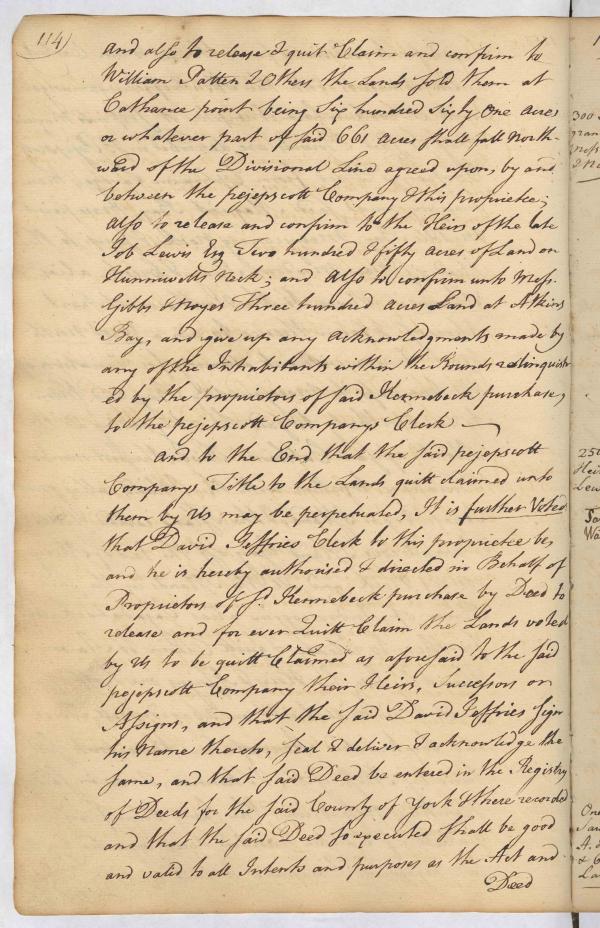 114)
and also to release & quit Claim and confirm to
William Patten & Others the Lands sold them at
Cathance point being Six hundred Sixty One acres
or whatever part of said 661 acres shall fall North-
ward of the Divisional Line agreed upon, by and
between the pejepscott Company & this proprietee;
also to release and confirm to the Heirs of the late
Job Lewis Esq Two hundred & fifty acres of Land on
Hunniwells Neck; and also to confirm unto Mess.
Gibbs & Noyes Three hundred acres Land at Atkins
Bay, and give up any acknowledgments made by
any of the Inhabitants within the Bounds relinquish
ed by the proprietors of said Kennebeck purchase,
to the pejepscott Companys Clerk
and to the End that the said pejepscott
Companys Title to the Lands quitt claimed unto
them by Us may be perpetuated, It is further Voted
that David Jeffries Clerk to this proprietee be,
and he is hereby authorised & directed in Behalf of
Proprietors of sd. Kennebeck purchase by Deed to
release and for ever Quitt Claim the Lands voted
by Us to be quitt Claimed as aforesaid to the said
pejepscott Company their Heirs, Successors or
Assigns, and that the said David Jeffries sign
his Name thereto, seal & deliver & acknowledge the
same, and that said Deed be entered in the Registry
of Deeds for the said County of York & there recorded
and that the said Deed so executed shall be good
and valid to all Intents and purposes as the Act and
Deed
300
250